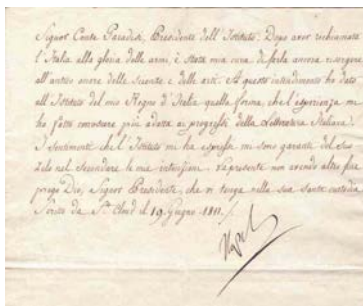 Signor Conte Paradisi, Presidente dell'Istituto. Dopo aver richiamato
l'Italia alla gloria delle armi, è stata mia cura di farla ancora risorgere
all'antico onore delle Scienze e delle arti. A questo intendimento ho dato
all'Istituto del mio Regno d'Italia quella forma, che l'esperienza mi
ha fatto conoscere più adatta ai progressi della Letteratura Italiana.
I sentimenti che l'Istituto mi ha espressi mi sono garanti del suo
zelo nel secondare le mie intenzioni. La presente non avendo altro fine
prego Dio, Signor Presidente, che vi tenga nella sua santa custodia
Scritto da St. Cloud il 19. Giugno 1811.